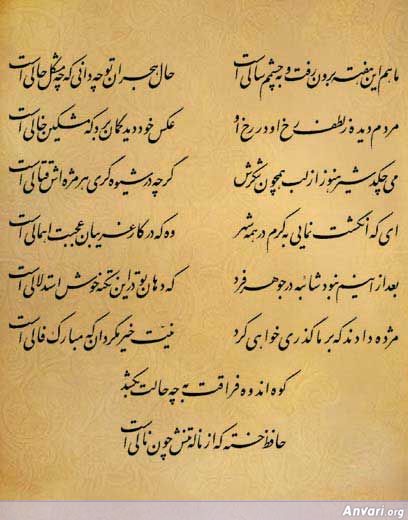 ماهم این هفته برون رفت و به چشمم سالی است حال هجران تو چه دانی که چه مشکل حالی است
مردم دیده ز لطف رخ او در رخ او عکس خود دید گمان برد که مشکین خالی است
می چکد شیر هنوز از لب همچون شکرش گر چه در شیوه گری هر مژه اش قتالی است
ای که انگشت نمایی به کرم در همه شهر وه که در کار غریبان عجبت اهمالی است
بعد از اینم نبود شائبه در جوهر فرد که دهان تو در این نکته خوش استدلالی است
مژده دادند که بر ما گذری خواهی کرد نیت خیر مگردان که مبارک فالی است
کوه اندوه فراقت به چه حالت بکشد
حافظ خسته که از ناله تنش چون نالی است
Anvari.org